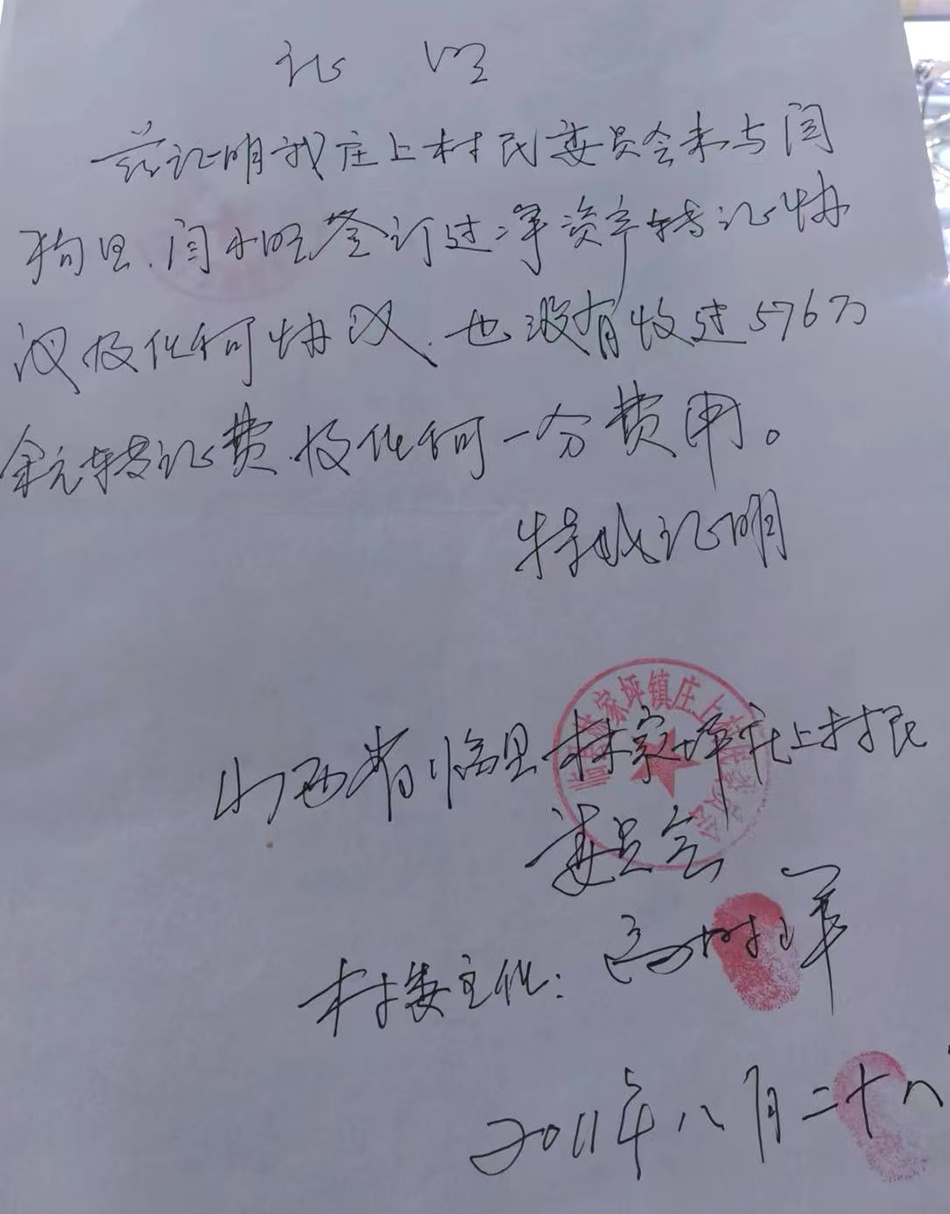 证 明
兹证明我庄上村民委员会未与闫
狗旦、闫小旺签订过净资产转让协
议及任何协议、也没有收过576万
余元转让费、及任何一分费用。
特此证明
山西省临县林家坪庄上村民
委员会
村委主任：高 军
2011年八月二十八
家坪镇庄上